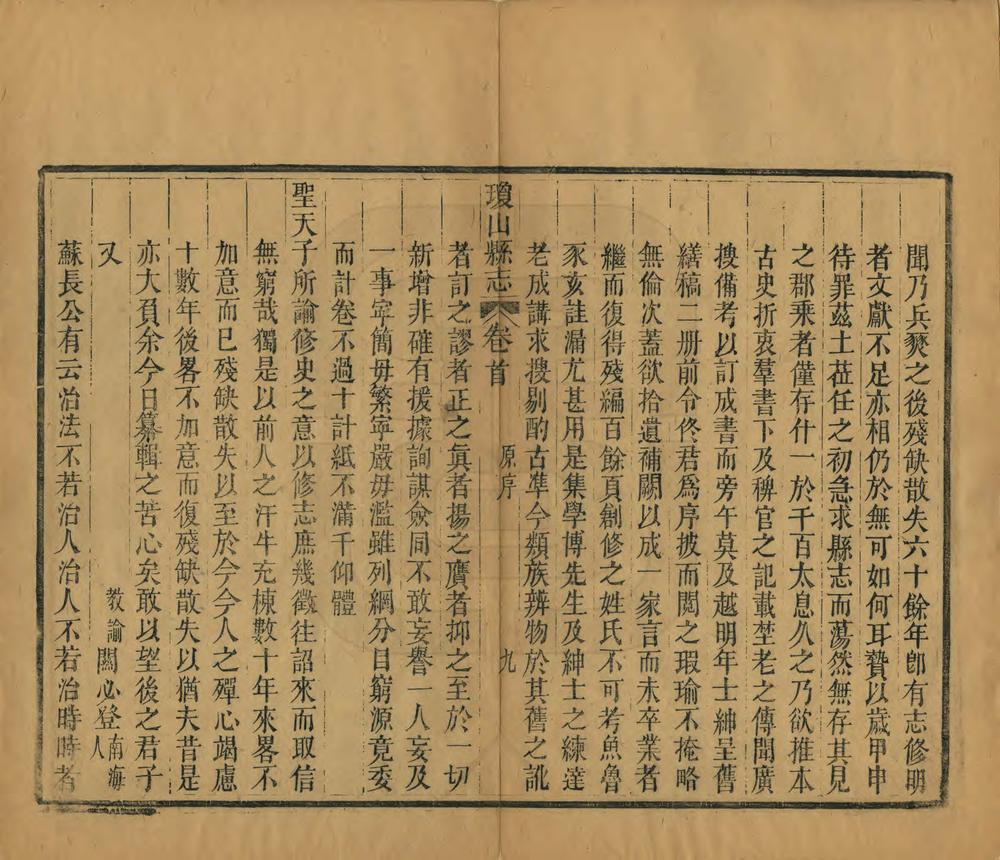 聞乃兵燹之後殘缺散失六十餘年卽有志修明
者文獻不足亦相仍於無可如何耳贄以歲甲申
待罪茲土莅任之初急求縣志而蕩然無存其見
之郡乘者僅存什一於千百太息久之乃欲推本
古史折衷羣書下及稗官之記載埜老之傳聞廣
搜備考以訂成書而旁午莫及越明年士紳呈舊
繕稿二册前令佟君爲序披而閱之瑕瑜不掩略
無倫次蓋欲拾遺補闕以成一家言而未卒業者
繼而復得殘編百餘頁創修之姓氏不可考魚魯
豕亥詿漏尤甚用是集學博先生及紳士之練達
老成講求搜剔酌古準今類族辨物於其舊之訛
瓊山縣志 卷首 原序 九
者訂之謬者正之眞者揚之贋者抑之至於一切
新增非確有援據詢謀僉同不敢妄譽一人妄及
一事寧簡毋繁寧嚴毋濫雖列綱分目窮源竟委
而計卷不過十計紙不滿千仰體
聖天子所諭修史之意以修志庶幾徵往詔來而取信
無窮哉獨是以前人之汗牛充棟數十年來畧不
加意而已殘缺散失以至於今今人之殫心竭慮
十數年後畧不加意而復殘缺散失以猶夫昔是
亦大負余今日纂輯之苦心矣敢以望後之君子
又 教諭 關必登 南海人
蘇長公有云治法不若治人治人不若治時時者